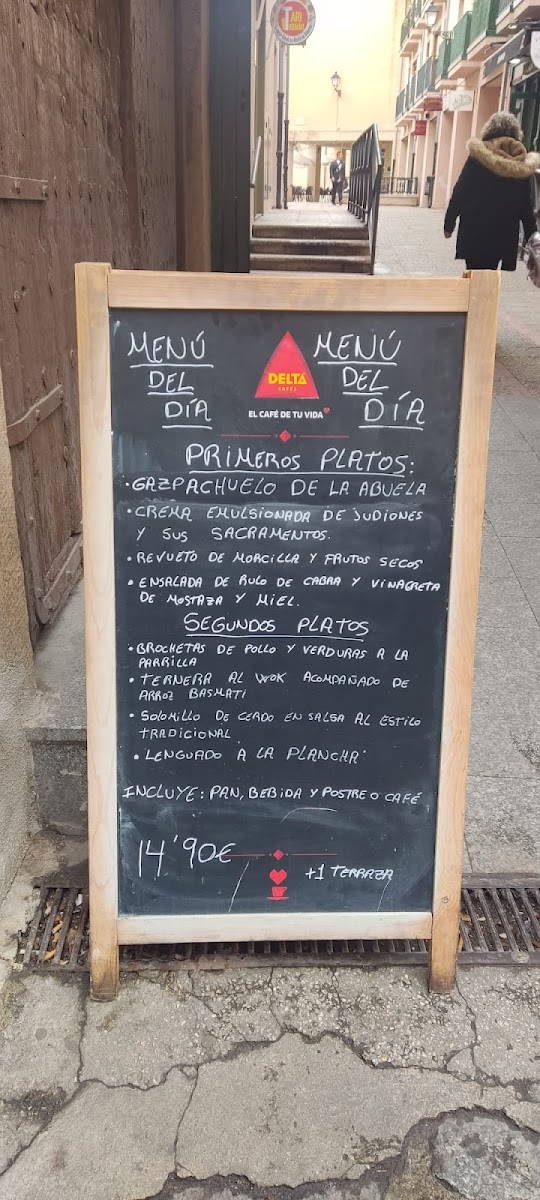 TARI
MENÚ
DEL
DÍA
DELTA
CAFÉS
EL CAFÉ DE TU VIDA
MENÚ
DEL
DÍA
PRIMEROS PLATOS:
• GAZPACHUELO DE LA ABUELA
• CREMA EMULSIONADA DE JUDIONES
Y SUS SACRAMENTOS.
• REVUETO DE MORCILLA Y FRUTOS SECOS
• ENSALADA DE RULO DE CABRA Y VINAGRETA
DE MOSTAZA Y MIEL.
SEGUNDOS PLATOS
• BROCHETAS DE POLLO Y VERDURAS A LA
PARRILLA
• TERNERA AL WOK ACOMPAÑADO DE
ARROZ BASMATI
• SOLOMILLO DE CERDO EN SALSA AL ESTILO
TRADICIONAL
• LENGUADO A LA PLANCHA
INCLUYE: PAN, BEBIDA Y POSTRE O CAFÉ
14'90€
+1 TERRAZA